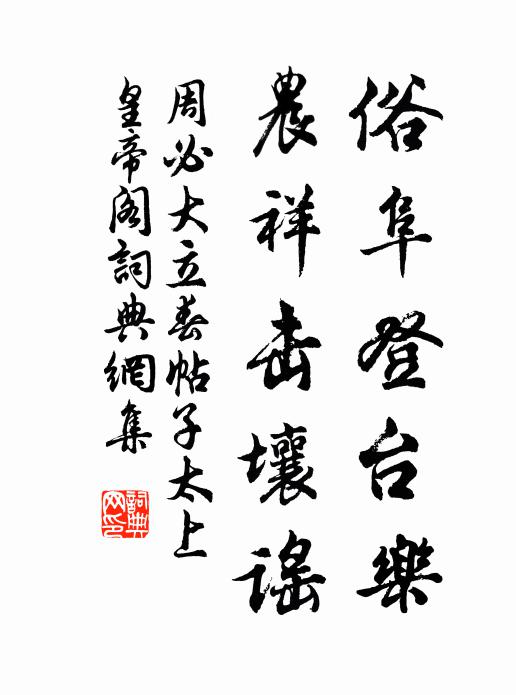 俗阜登台樂
農祥击壤謠
周必大立春帖子太上
皇帝阁詞典網集
詞典网印